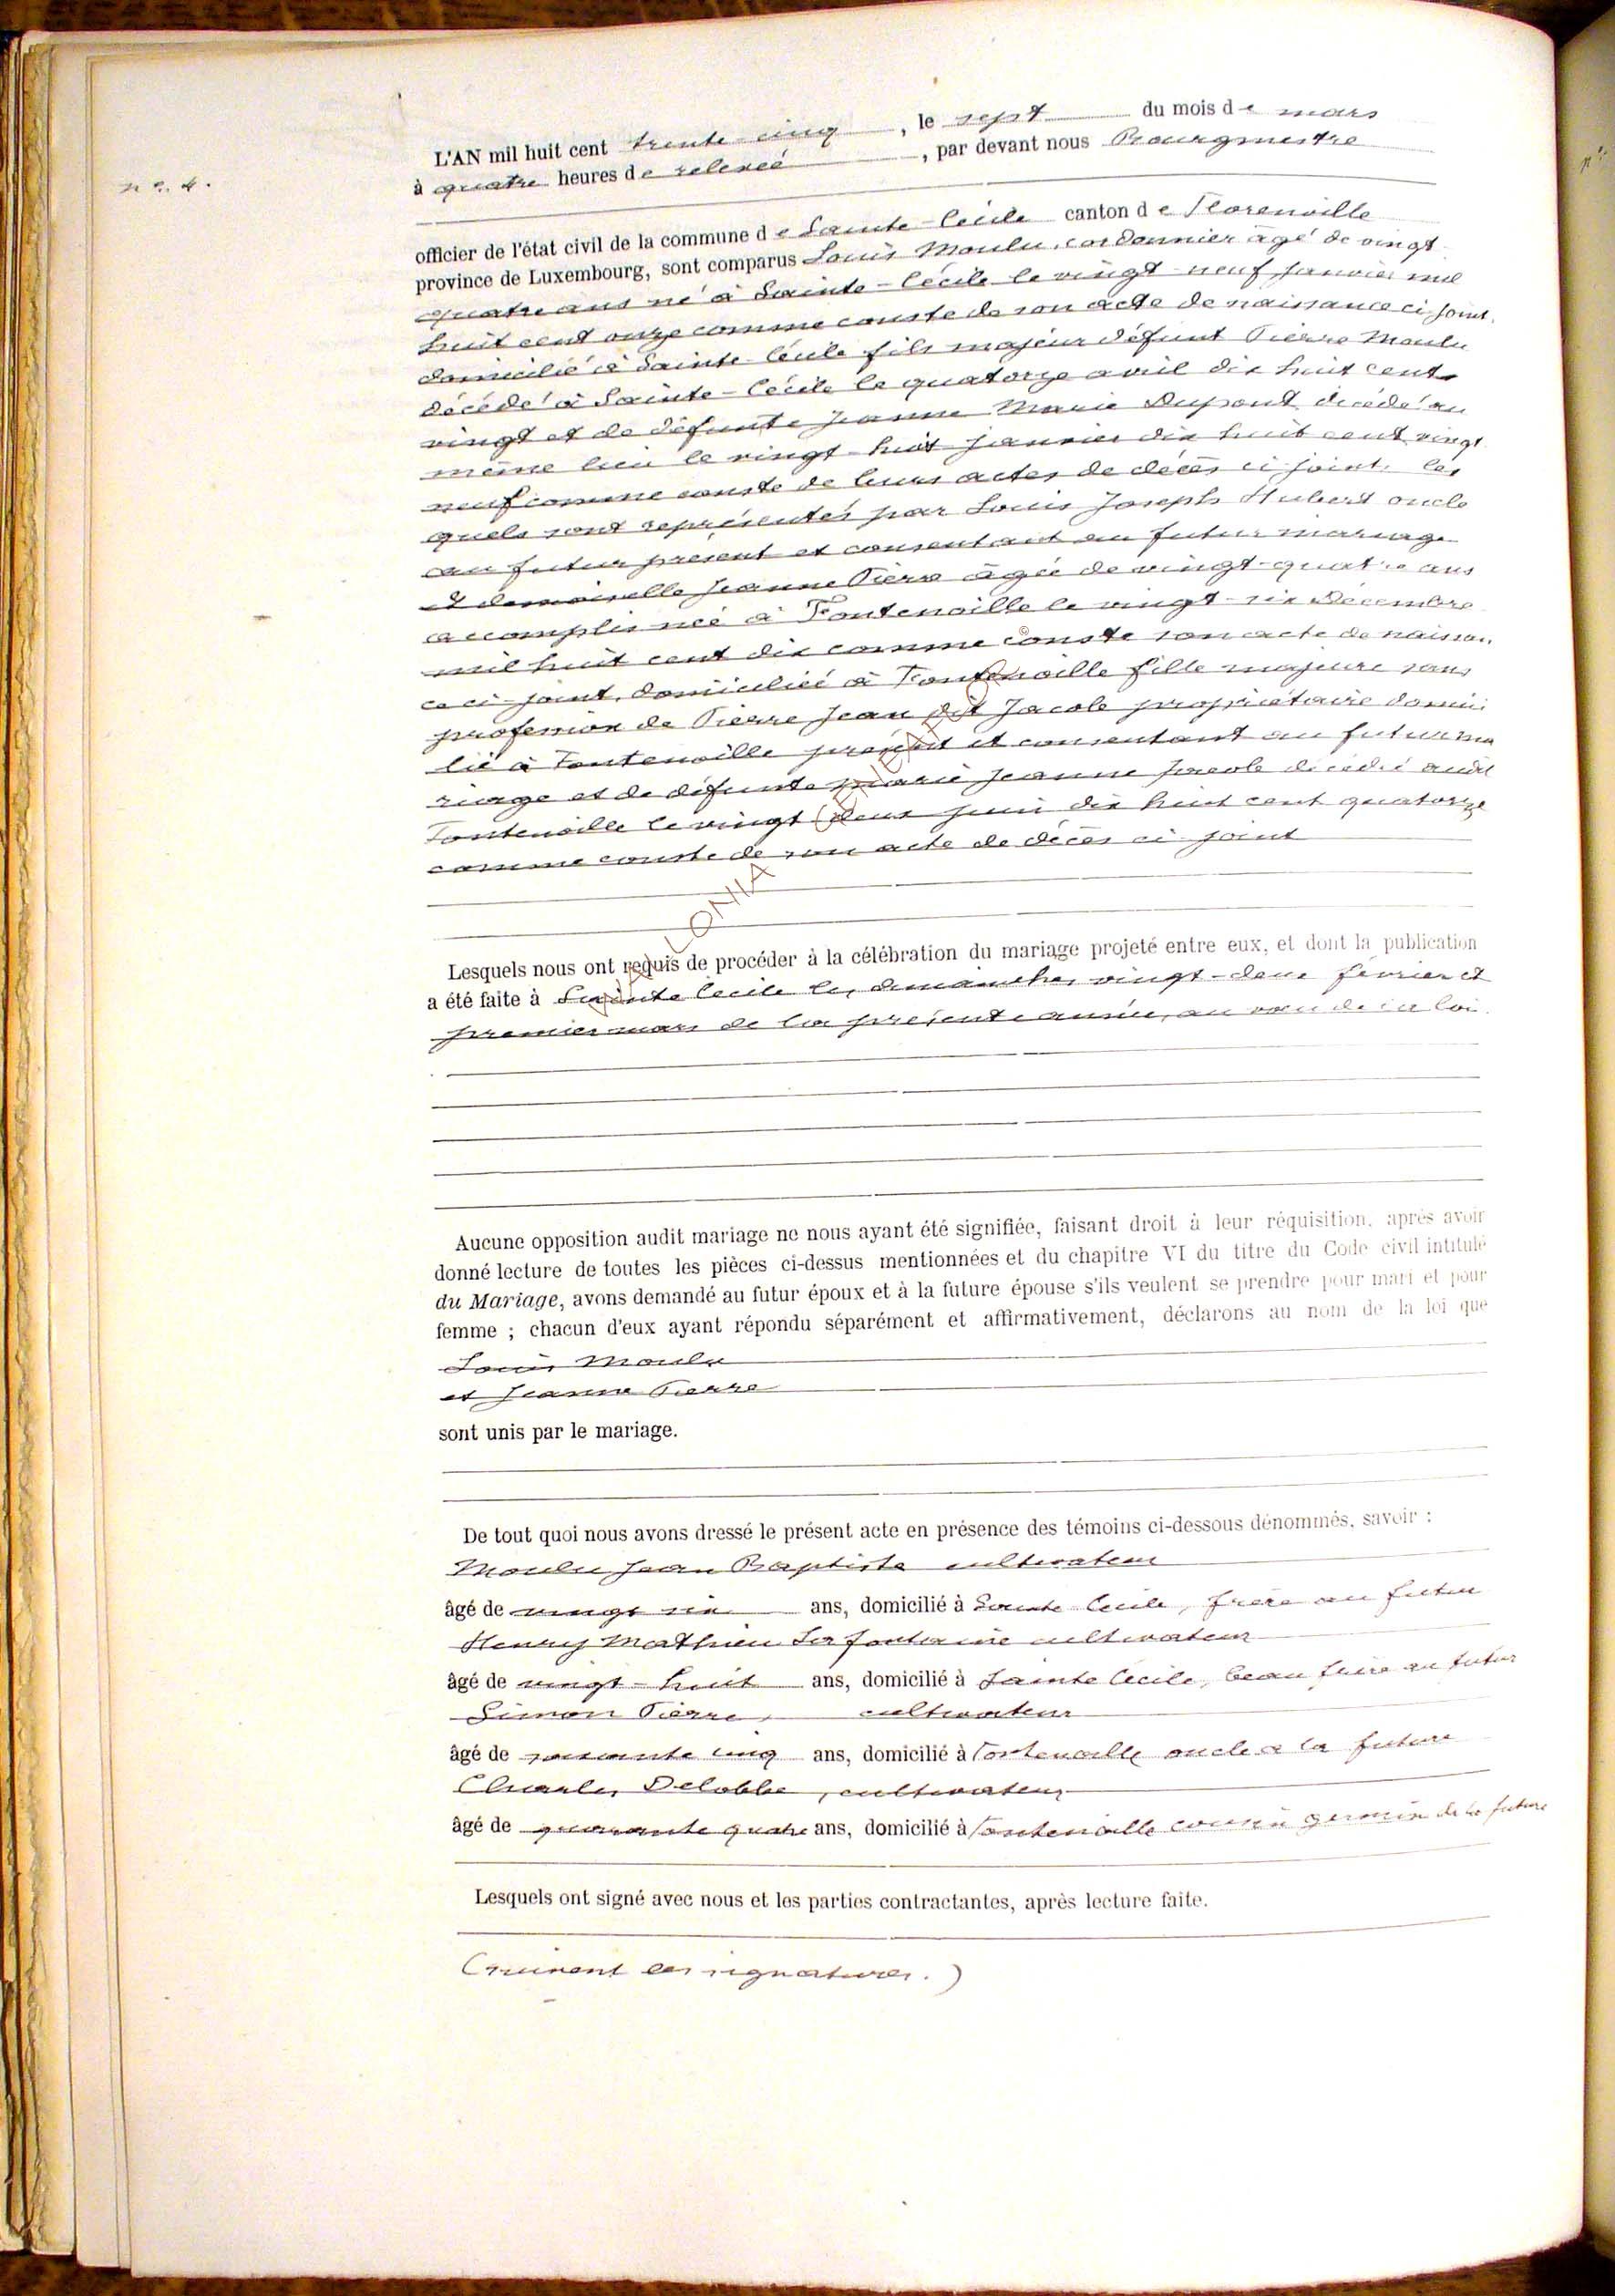 n° 4.
L'AN mil huit cent trente cinq, le sept du mois de mars
à quatre heures de relevée, par devant nous Bourgmestre
officier de l'état civil de la commune de Sainte-Cécile canton de Florenville
province de Luxembourg, sont comparus Louis Moulu, cordonnier âgé de vingt
quatre ans né à Sainte-Cécile le vingt-neuf Janvier mil
huit cent onze comme conste de son acte de naissance ci-joint,
domicilié à Sainte-Cécile fils majeur défunt Pierre Moulu
décédé à Sainte-Cécile le quatorze avril dix huit cent
vingt et de défunte Jeanne Marie Dupont décédé au
même lieu le vingt-huit janvier dix huit cent vingt
neuf comme conste de leurs actes de décès ci-joint, les
quels sont représentés par Louis Joseph Hubert oncle
au futur présent et consentant au futur mariage
et demoiselle Jeanne Pierre âgée de vingt-quatre ans
accomplis née à Fontenoille le vingt-six Décembre
mil huit cent dix comme conste son acte de naissan
ce ci-joint, domiciliée à Fontenoille fille majeure sans
profession de Pierre Jean dit Jacole propriétaire domici
lié à Fontenoille présent et consentant au futur ma
riage et de défunte marie Jeanne Jacole décédée audit
Fontenoille le vingt deux juin dix huit cent quatorze
comme conste de son acte de décès ci-joint
Lesquels nous ont requis de procéder à la célébration du mariage projeté entre eux, et dont la publication
a été faite à Sainte Cecile les dimanches vingt-deux février et
premier mars de la présente année, au vœu de la loi.
Aucune opposition audit mariage ne nous ayant été signifiée, faisant droit à leur réquisition, après avoir
donné lecture de toutes les pièces ci-dessus mentionnées et du chapitre VI du titre du Code civil intitulé
du Mariage, avons demandé au futur époux et à la future épouse s'ils veulent se prendre pour mari et pour
femme ; chacun d'eux ayant répondu séparément et affirmativement, déclarons au nom de la loi que
Louis Moulu
et Jeanne Pierre
sont unis par le mariage.
De tout quoi nous avons dressé le présent acte en présence des témoins ci-dessous dénommés, savoir :
Moulu Jean Baptiste cultivateur
âgé de vingt six ans, domicilié à Sainte Cecile, frère au futur
Henry Mathieu Lafontaine cultivateur
âgé de vingt-huit ans, domicilié à Sainte Cécile, beau frère au futur
Simon Pierre, cultivateur
âgé de soixante cinq ans, domicilié à Fontenoille oncle a la future
Charles Delobbe, cultivateur
âgé de quarante quatre ans, domicilié à Fontenoille cousin germain de la future
Lesquels ont signé avec nous et les parties contractantes, après lecture faite.
(suivent les signatures.)